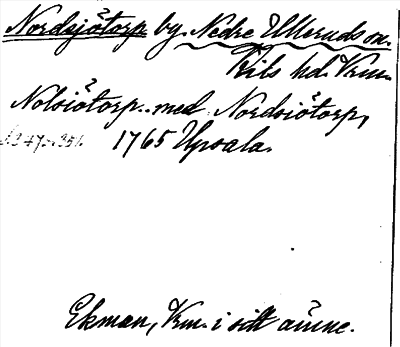 Nordsjötorp by. Nedre Ulleruds sn.
Kils hd. Vrm.
Nolsiötorp. med Nordsiötorp,
1765 Upsala.
Ekman, Vrm. i sitt ämne.